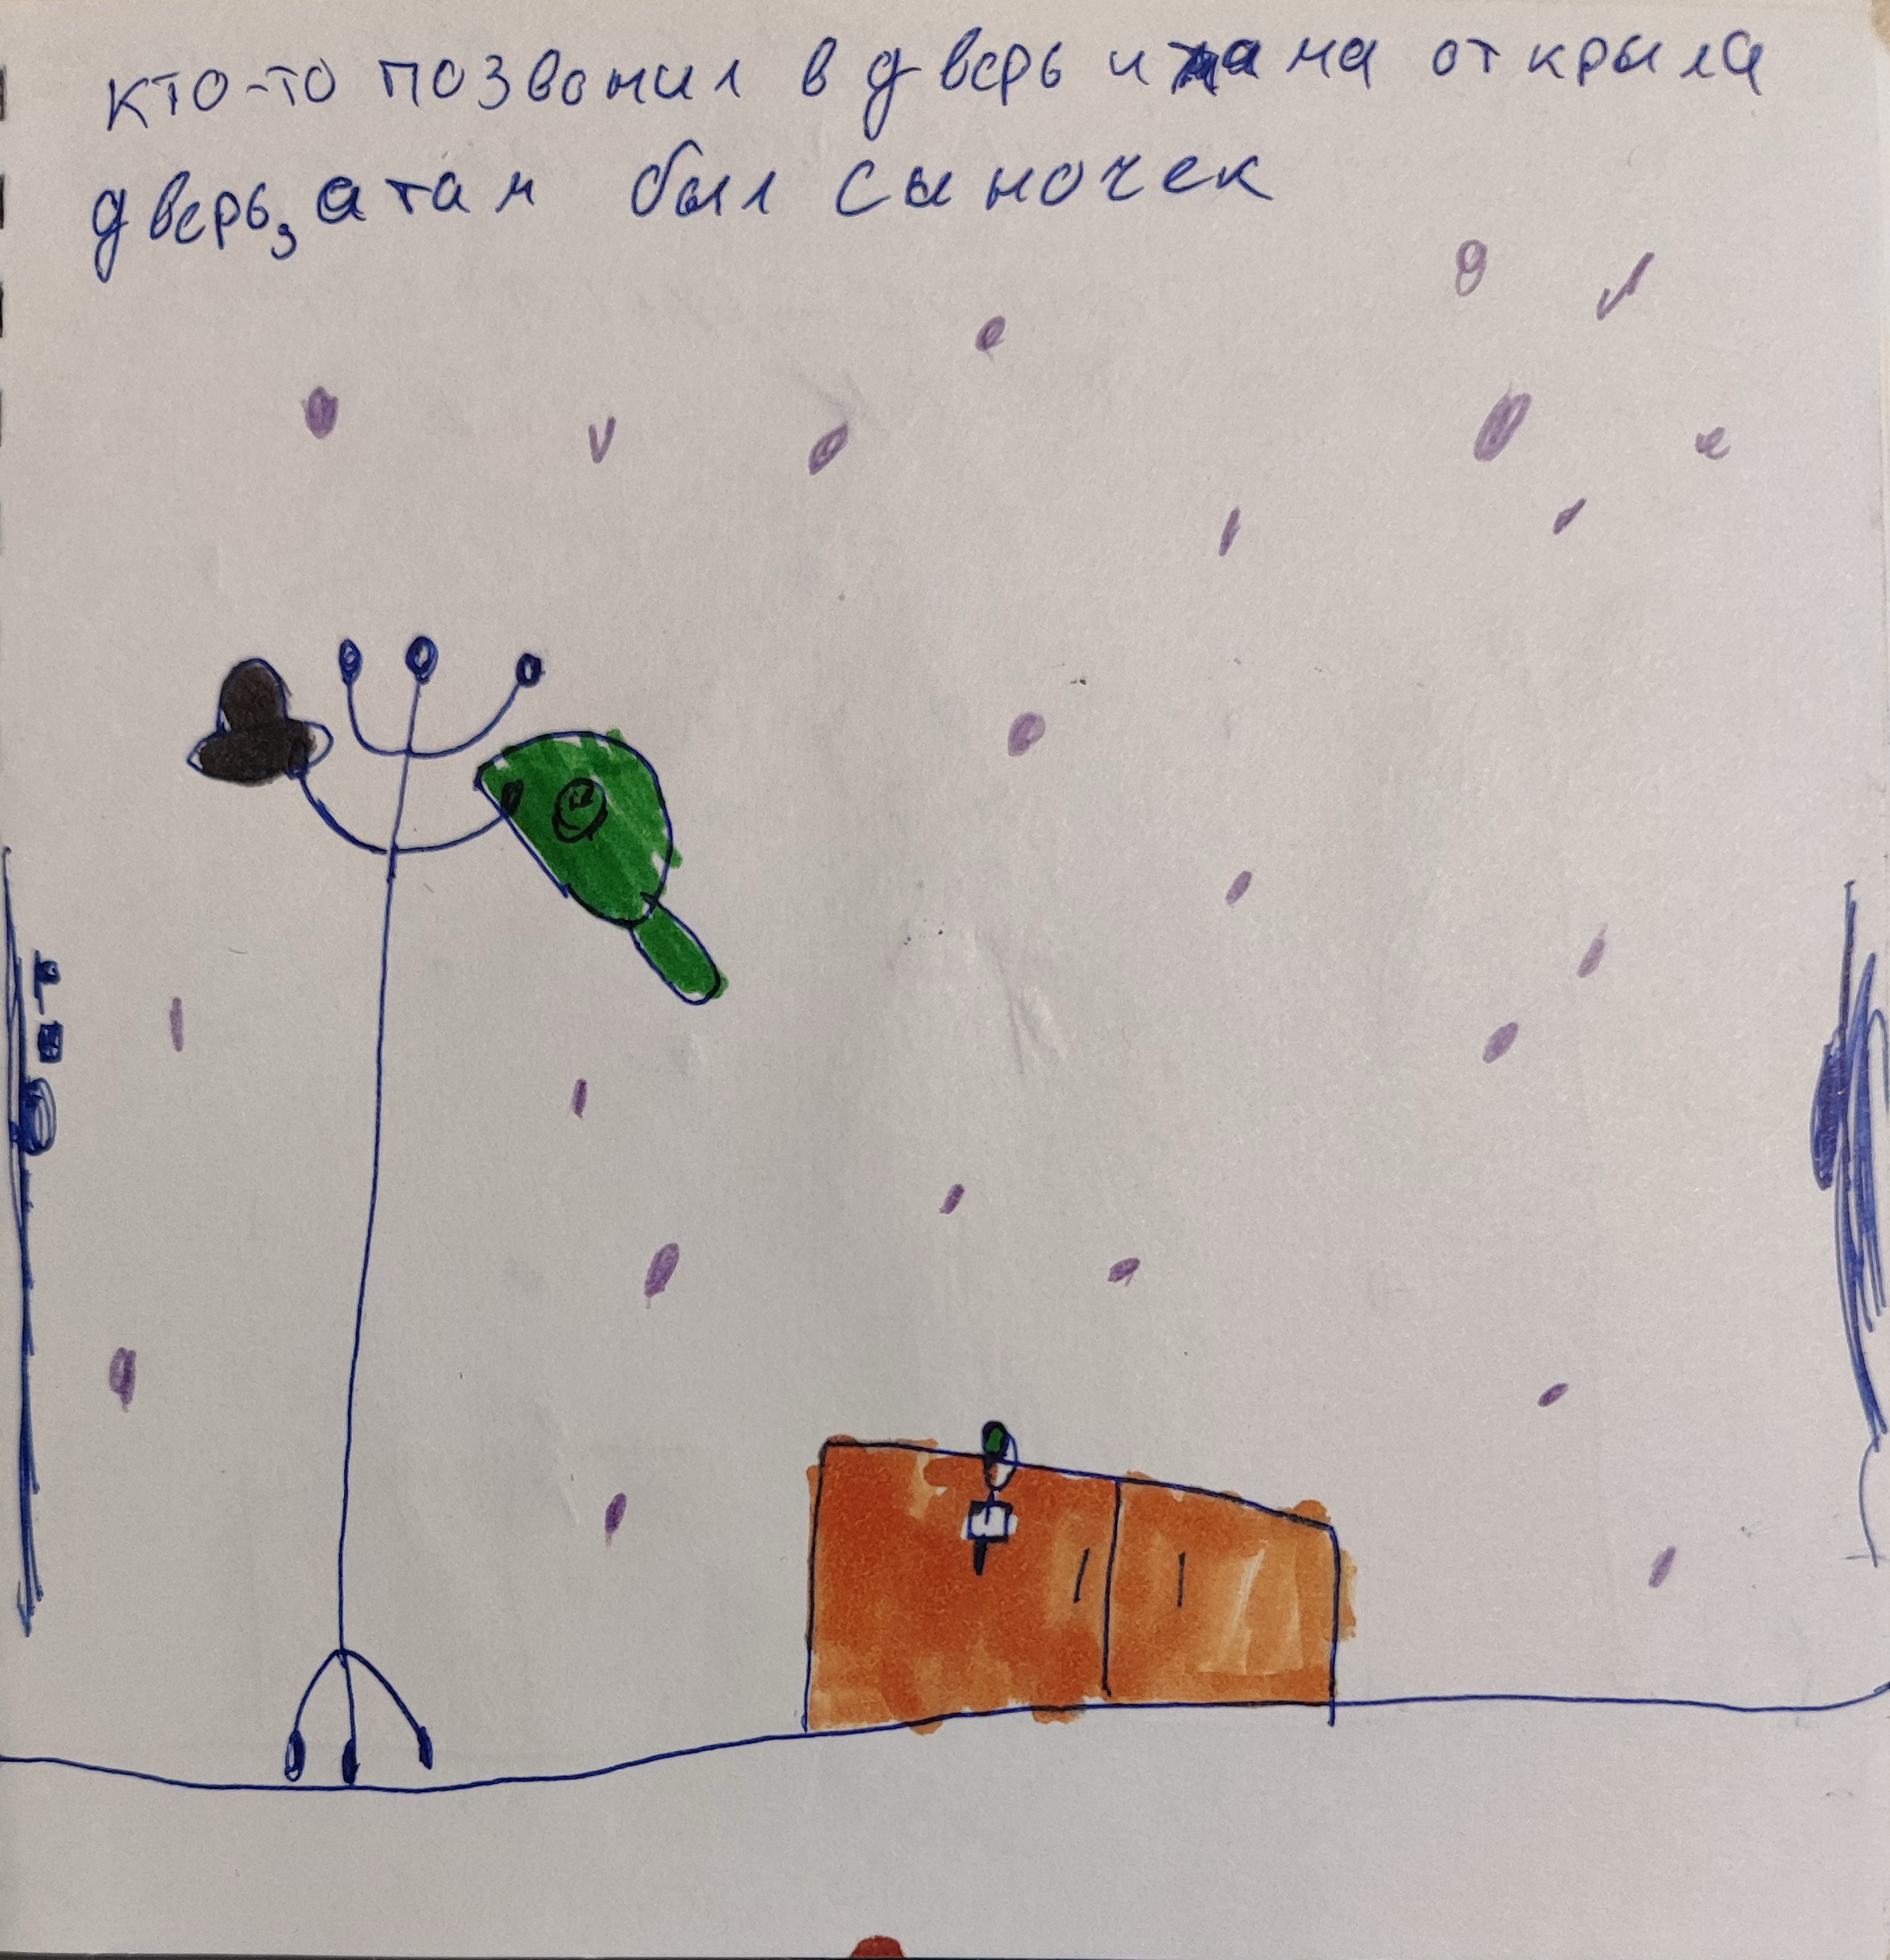 кто-то позвонил в дверь и мама открыла
дверь, а там был сыночек